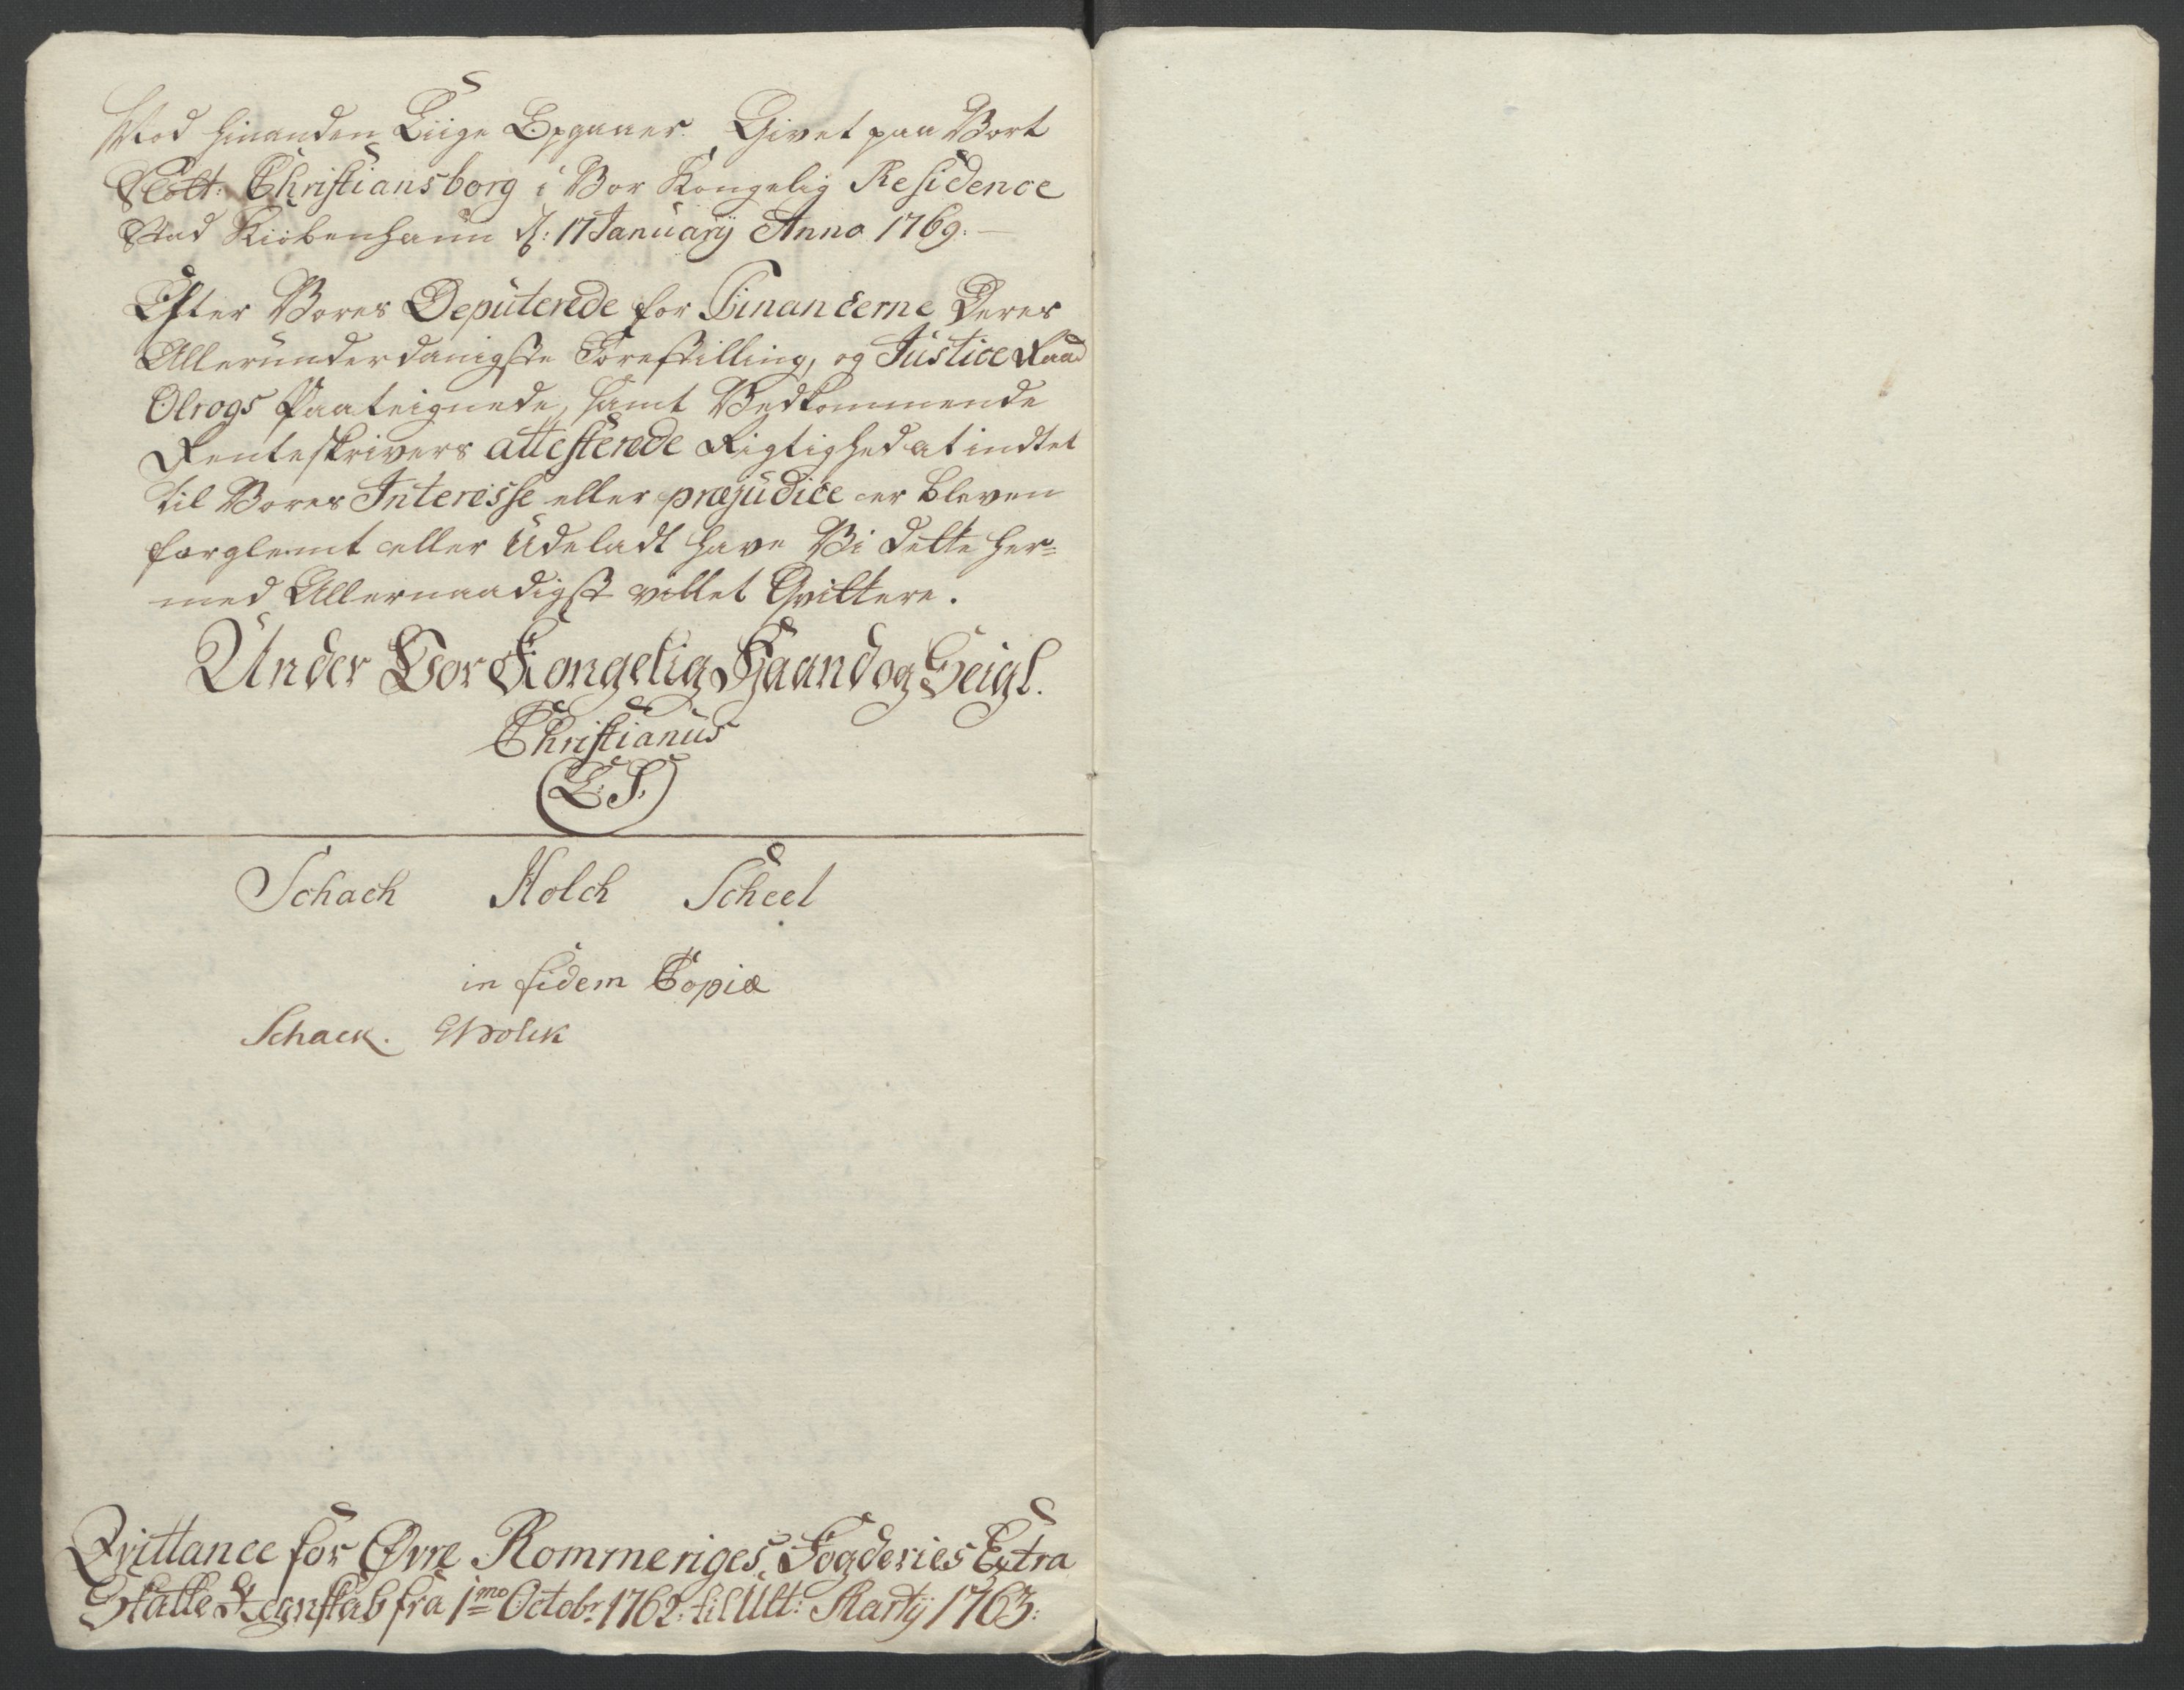 Mod hinanden Liige Opgaaer. Givet paa Vort
Slott: Christiansborg i Vor Kongelig Residence
Stad Kiøbenhavn d: 17 Januarij Anno 1769.
Efter Vores Deputerede for Financerne Deres
Allerunderdanigste Forestilling, og Justice Raad
Olrogs Paateignede, samt Vedkommende
Renteskrivers attesterede Rigtighed at indtet
til Vores Interesse eller præjudice er bleven
forglemt eller Udeladt have Vi dette her=
med Allernaadigst villet Qvittere.
Under Vor Kongelig Haand og Seigl.
Christianus
(L. S.)
Schack Holck Scheel
in fidem Copiæ
Schack. GHolck
Qvittance for Øvre Rommeriges Fogderies Extra
Skatte Regnskab fra 1mo Octobr 1762 til Ult: Martij 1763: